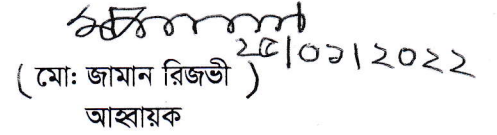 ২৫|০১|২০২২
( মো: জামান রিজভী )
আহ্বায়ক